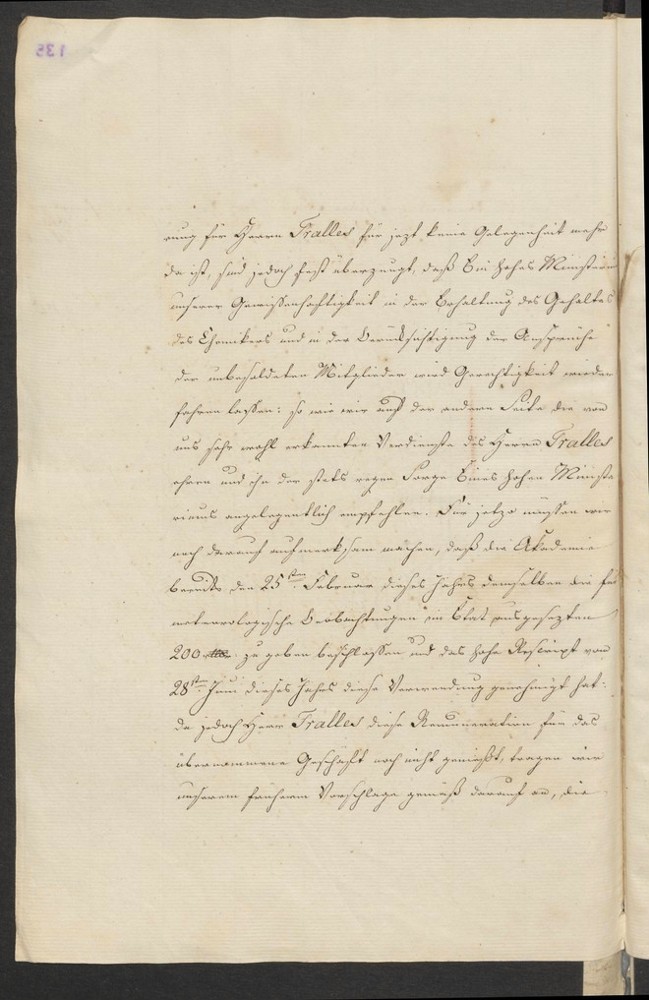 rung für Herrn Tralles für jezt keine Gelegenheit mehr
da ist, sind jedoch fest überzeugt, daß Ein hohes Ministerium
unserer Gewissenhaftigkeit in der Erhaltung des Gehaltes
des Chemikers und in der Berücksichtigung der Ansprüche
der unbesoldeten Mitglieder wird Gerechtigkeit wieder
fahren lassen: so wie wir auf der andern Seite die von
uns sehr wohl erkannten Verdienste des Herrn Tralles
ehren und ihn der stets regen Sorge Eines hohen Ministe
riums angelegentlich empfehlen. Für jetzo müssen wir
noch darauf aufmerksam machen, daß die Akademie
bereits den 25sten Februar dieses Jahres demselben die für
meteorologische Beobachtungen im Etat ausgesezten
200 zu geben beschlossen und das hohe Rescript vom
28sten Juni dieses Jahres diese Verwendung genehmigt hat:
da jedoch Herr Tralles diese Remuneration für das
übernommene Geschäft noch nicht genießt, tragen wir
unserem früheren Vorschlage gemäß darauf an, die
135